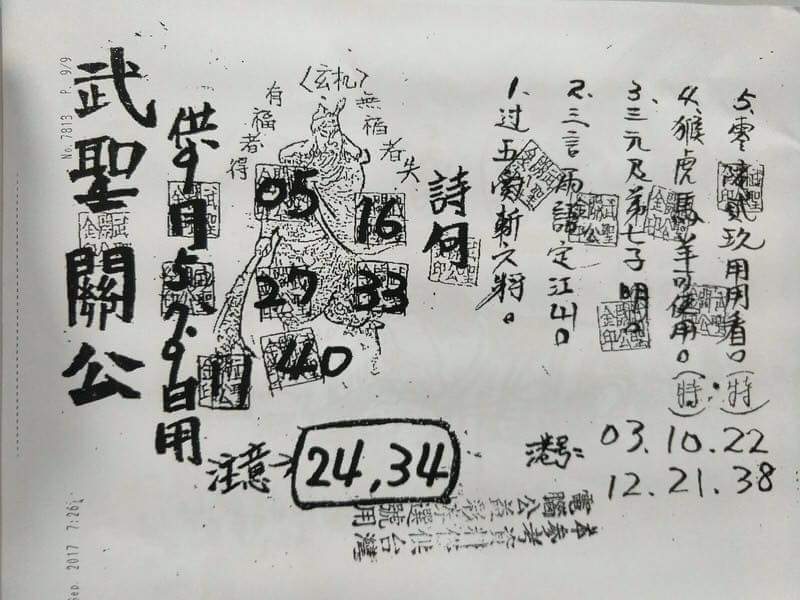 No.7813 P. 9/9
武聖關公
供9月5.7.9日用
〈玄机〉
有福者得
無福者失
05
16
27
33
11
40
注意→ 24,34
詩句
1.过五關斬六將。
2.三言兩語定江山。
3.三元及第七子明。
4.猴虎馬羊可使用。(特)
5.零陸貳玖用用看。(特)
港号: 03.10.22
12.21.38
本參考資料僅供台灣
電腦公益彩券選號用
Sep. 2017 7:26